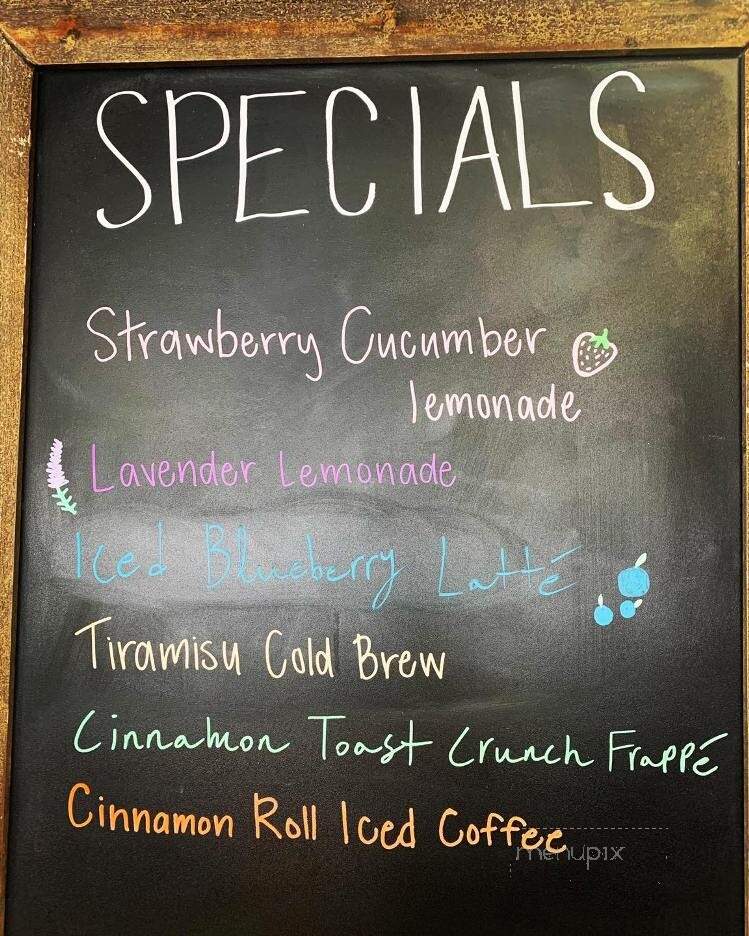 SPECIALS
Strawberry Cucumber
lemonade
Lavender Lemonade
Iced Blueberry Latté
Tiramisu Cold Brew
Cinnamon Toast Crunch Frappé
Cinnamon Roll Iced Coffee
menupix